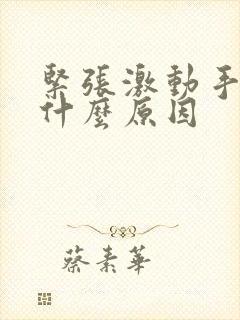 緊張激動手
什麼原因
蔡素華